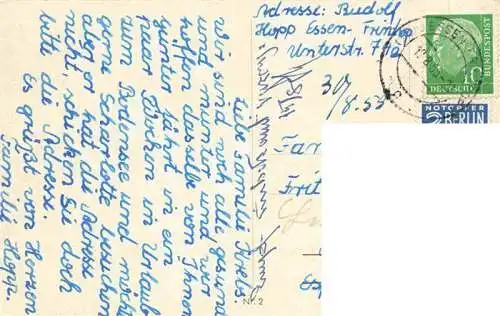 Liebe Familie Krebs.
Wir sind noch alle gesund
und munter und wir
hoffen dasselbe von Ihnen
Günter fährt in ein
paar Wochen in Urlaub
zum Bodensee und möchte
gerne Scharlotte besuchen
aber er hat die Adresse
nicht, schicken Sie doch
bitte die Adresse.
Es grüßt von Herzen
Familie Hopp.
Adresse: Rudolf
Hopp Essen-Frintrop
Unterstr. 71a
30/
/8.55
Fam
Frit
Nr. 2
10
DEUTSCHE
BUNDESPOST
NOTOPFER
2 BERLIN